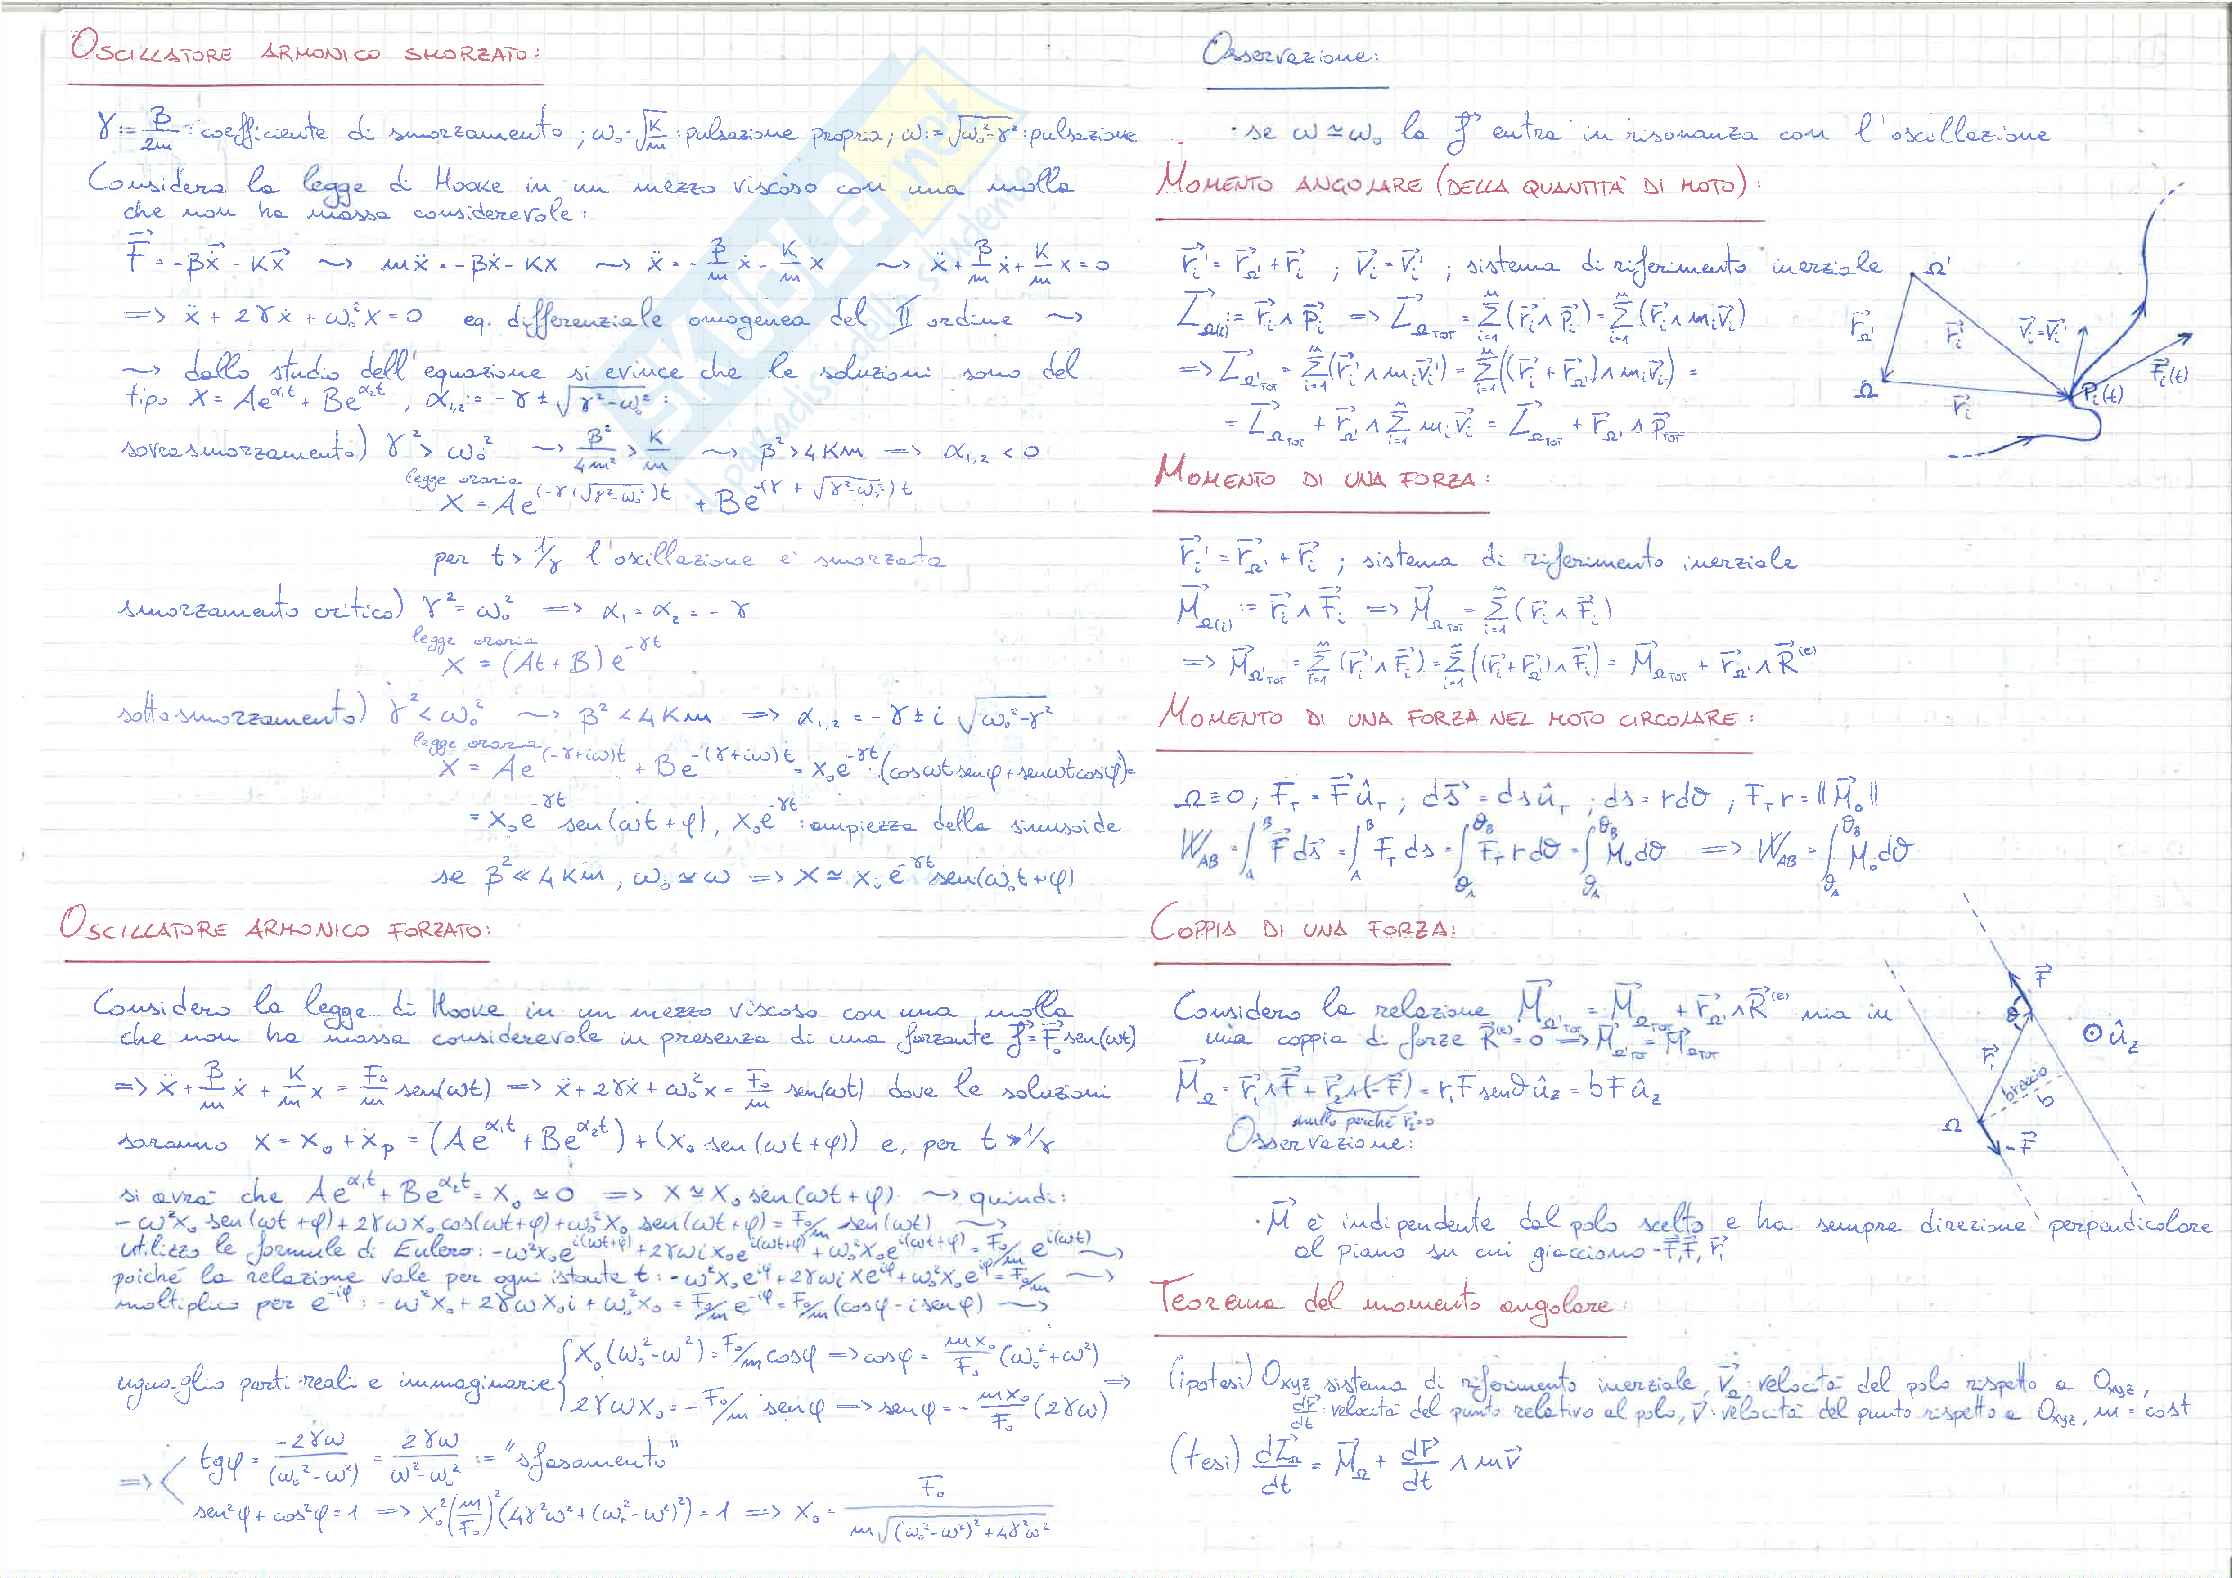 OSCILLATORE ARMONICO SMORZATO:
γ := β/2m : coefficiente di smorzamento ; ω₀ = √(K/m) : pulsazione propria ; ω := √(ω₀²-γ²) : pulsazione
Considero la legge di Hooke in un mezzo viscoso con una molla
che non ha massa considerevole:
F⃗ = -βẋ⃗ - Kx⃗ ~> mẍ = -βẋ - Kx ~> ẍ = -β/m ẋ - K/m x ~> ẍ + β/m ẋ + K/m x = 0
=> ẍ + 2γẋ + ω₀²x = 0 eq. differenziale omogenea del II ordine ~>
~> dallo studio dell'equazione si evince che le soluzioni sono del
tipo x = Ae^(α₁t) + Be^(α₂t) , α₁,₂ = -γ ± √(γ²-ω₀²) :
sovrasmorzamento) γ² > ω₀² ~> β²/4m² > K/m ~> β² > 4Km => α₁,₂ < 0
legge oraria
x = Ae^((-γ+√(γ²-ω₀²))t) + Be^(-(γ+√(γ²-ω₀²))t)
per t > 1/γ l'oscillazione è smorzata
smorzamento critico) γ² = ω₀² => α₁ = α₂ = -γ
legge oraria
x = (At + B) e^(-γt)
sottosmorzamento) γ² < ω₀² ~> β² < 4Km => α₁,₂ = -γ ± i √(ω₀²-γ²)
legge oraria
x = Ae^((-γ+iω)t) + Be^(-(γ+iω)t) = x₀e^(-γt) · (cosωt senφ + senωt cosφ) =
= x₀e^(-γt) sen(ωt + φ) , x₀e^(-γt) : ampiezza della sinusoide
se β² ≪ 4Km , ω₀ ≃ ω => x ≃ x₀ e^(-γt) sen(ω₀t + φ)
OSCILLATORE ARMONICO FORZATO:
Considero la legge di Hooke in un mezzo viscoso con una molla
che non ha massa considerevole in presenza di una forzante f⃗ = F⃗₀ sen(ωt)
=> ẍ + β/m ẋ + K/m x = F₀/m sen(ωt) => ẍ + 2γẋ + ω₀²x = F₀/m sen(ωt) dove le soluzioni
saranno x = x₀ + x_p = (Ae^(α₁t) + Be^(α₂t)) + (x₀ sen(ωt + φ)) e, per t ≫ 1/γ
si avrà che Ae^(α₁t) + Be^(α₂t) = x₀ ≃ 0 => x ≃ x₀ sen(ωt + φ) ~> quindi:
-ω²x₀ sen(ωt + φ) + 2γωx₀ cos(ωt + φ) + ω₀²x₀ sen(ωt + φ) = F₀/m sen(ωt) ~>
utilizzo le formule di Eulero: -ω²x₀e^(i(ωt+φ)) + 2γωi x₀e^(i(ωt+φ)) + ω₀²x₀e^(i(ωt+φ)) = F₀/m e^(i(ωt)) ~>
poiché la relazione vale per ogni istante t: -ω²x₀e^(iφ) + 2γωi xe^(iφ) + ω₀²x₀e^(iφ) = F₀/m ~>
moltiplico per e^(-iφ) : -ω²x₀ + 2γωx₀i + ω₀²x₀ = F₀/m e^(-iφ) = F₀/m (cosφ - i senφ) ~>
uguaglio parti reali e immaginarie { x₀(ω₀²-ω²) = F₀/m cosφ => cosφ = mx₀/F₀ (ω₀²+ω²)
2γωx₀ = -F₀/m senφ => senφ = -mx₀/F₀ (2γω) =>
=> < tgφ = -2γω/(ω₀²-ω²) = 2γω/(ω²-ω₀²) := "sfasamento"
sen²φ + cos²φ = 1 => x₀²(m/F₀)²(4γ²ω² + (ω₀²-ω²)²) = 1 => x₀ = F₀/(m√((ω₀²-ω²)² + 4γ²ω²))
Osservazione:
· se ω ≃ ω₀ la f⃗ entra in risonanza con l'oscillazione
MOMENTO ANGOLARE (DELLA QUANTITÀ DI MOTO):
r⃗ᵢ' = r⃗_Ω' + r⃗ᵢ ; v⃗ᵢ = v⃗ᵢ' ; sistema di riferimento inerziale
L⃗_Ω(i) := r⃗ᵢ ∧ p⃗ᵢ => L⃗_ΩTOT = Σ(i=1, n)(r⃗ᵢ ∧ p⃗ᵢ) = Σ(i=1, n)(r⃗ᵢ ∧ mᵢv⃗ᵢ)
=> L⃗_Ω'TOT = Σ(i=1, n)(r⃗ᵢ' ∧ mᵢv⃗ᵢ') = Σ(i=1, n)((r⃗ᵢ + r⃗_Ω') ∧ mᵢv⃗ᵢ) =
= L⃗_ΩTOT + r⃗_Ω' ∧ Σ(i=1, n) mᵢv⃗ᵢ = L⃗_ΩTOT + r⃗_Ω' ∧ p⃗_TOT
Ω'
r⃗_Ω'
r⃗ᵢ'
v⃗ᵢ = v⃗ᵢ'
F⃗ᵢ(t)
Ω
r⃗ᵢ
Pᵢ(t)
MOMENTO DI UNA FORZA:
r⃗ᵢ' = r⃗_Ω' + r⃗ᵢ ; sistema di riferimento inerziale
M⃗_Ω(i) := r⃗ᵢ ∧ F⃗ᵢ => M⃗_ΩTOT = Σ(i=1, n)(r⃗ᵢ ∧ F⃗ᵢ)
=> M⃗_Ω'TOT = Σ(i=1, n)(r⃗ᵢ' ∧ F⃗ᵢ) = Σ(i=1, n)((r⃗ᵢ + r⃗_Ω') ∧ F⃗ᵢ) = M⃗_ΩTOT + r⃗_Ω' ∧ R⃗^(e)
MOMENTO DI UNA FORZA NEL MOTO CIRCOLARE:
Ω ≡ O ; F_T = F⃗ û_T ; ds⃗ = ds û_T ; ds = r dθ ; F_T r = ‖M⃗₀‖
W_AB = ∫_A^B F⃗ ds⃗ = ∫_A^B F_T ds = ∫_θA^θB F_T r dθ = ∫_θA^θB M₀ dθ => W_AB = ∫_θA^θB M₀ dθ
COPPIA DI UNA FORZA:
Considero la relazione M⃗_Ω'TOT = M⃗_ΩTOT + r⃗_Ω' ∧ R⃗^(e) ma in
una coppia di forze R⃗^(e) = 0 => M⃗_Ω'TOT = M⃗_ΩTOT
M⃗_Ω = r⃗₁ ∧ F⃗ + r⃗₂ ∧ (-F⃗) = r₁ F senθ û_z = b F û_z
nullo perché r⃗₂ = 0
F⃗
θ
û_z
r⃗₁
braccio
b
Ω
-F⃗
Osservazione:
· M⃗ è indipendente dal polo scelto e ha sempre direzione perpendicolare
al piano su cui giacciono -F⃗, F⃗, r⃗₁
Teorema del momento angolare:
(ipotesi) Oxyz sistema di riferimento inerziale, v⃗_Ω : velocità del polo rispetto a Oxyz,
dr⃗/dt : velocità del punto relativo al polo, v⃗ : velocità del punto rispetto a Oxyz, m = cost
(tesi) dL⃗_Ω/dt = M⃗_Ω + dr⃗/dt ∧ mv⃗
SKUOLA.net
il paradiso dello studente